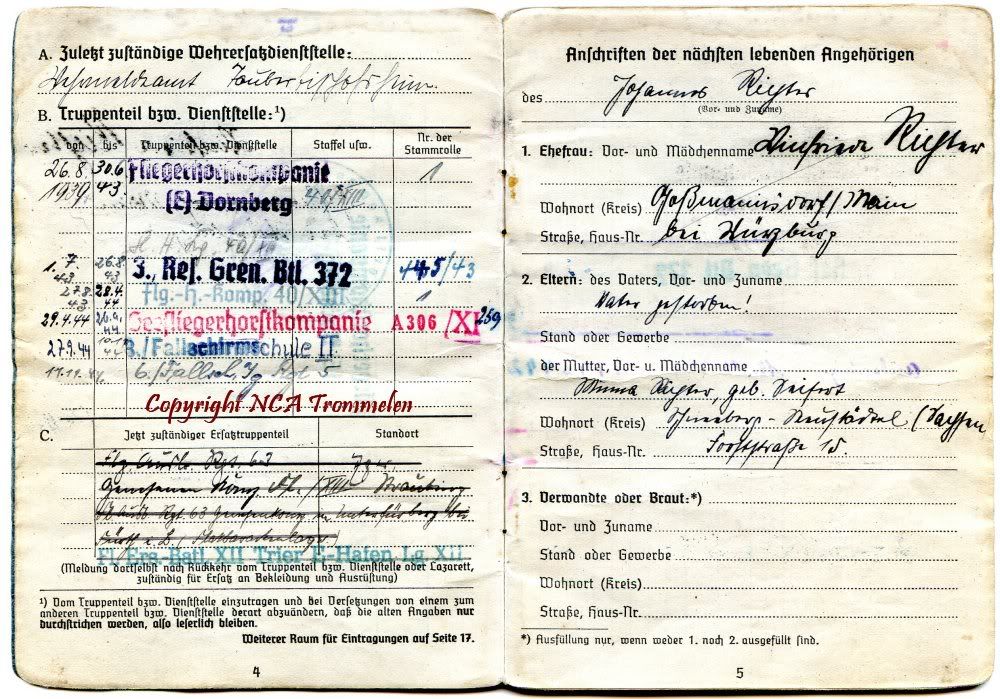 A. Zuletzt zuständige Wehrersatzdienststelle:
Wehrmeldeamt Tauberbischofsheim
B. Truppenteil bzw. Dienststelle:¹)
von bis Truppenteil bzw. Dienststelle Staffel usw. Nr. der Stammrolle
26.8. 30.6 Fliegerhorstkompanie 1
1939 43 (E) Dornberg
1.7. 26.8. 3. Res. Gren. Btl. 372 445/43
43 43
27.8. 28.4. Flg.-H.-Komp. 40/XIII 1
43 44
29.4.44 Seefliegerhorstkompanie A306/XI 259
27.9.44 3./Fallschirmschule II
6./Fallsch. Jg. Rgt 5
Copyright NCA Trommelen
C. Jetzt zuständiger Ersatztruppenteil Standort
Flg. Ausb. Rgt. 63
Genesenen Komp. /XIII Straubing
Rgt. 63
Fl. Ers.-Batl. XII Trier E-Hafen, Lg. XII
(Meldung dortselbst nach Rückkehr vom Truppenteil bzw. Dienststelle oder Lazarett,
zuständig für Ersatz an Bekleidung und Ausrüstung)
¹) Vom Truppenteil bzw. Dienststelle einzutragen und bei Versetzungen von einem zum
anderen Truppenteil bzw. Dienststelle derart abzuändern, daß die alten Angaben nur
durchstrichen werden, also leserlich bleiben.
Weiterer Raum für Eintragungen auf Seite 17.
4
Anschriften der nächsten lebenden Angehörigen
des Johannes Richter
(Vor- und Zuname)
1. Ehefrau: Vor- und Mädchenname Winfriede Richter
Wohnort (Kreis) Goßmannsdorf/Main
Straße, Haus-Nr. bei Würzburg
2. Eltern: des Vaters, Vor- und Zuname
Vater gestorben!
Stand oder Gewerbe
der Mutter, Vor- u. Mädchenname
Richter, geb. Seifert
Wohnort (Kreis) Schneeberg-Neustädtel (Sachsen
Straße, Haus-Nr. Forststraße 15.
3. Verwandte oder Braut:*)
Vor- und Zuname
Stand oder Gewerbe
Wohnort (Kreis)
Straße, Haus-Nr.
*) Ausfüllung nur, wenn weder 1. noch 2. ausgefüllt sind.
5